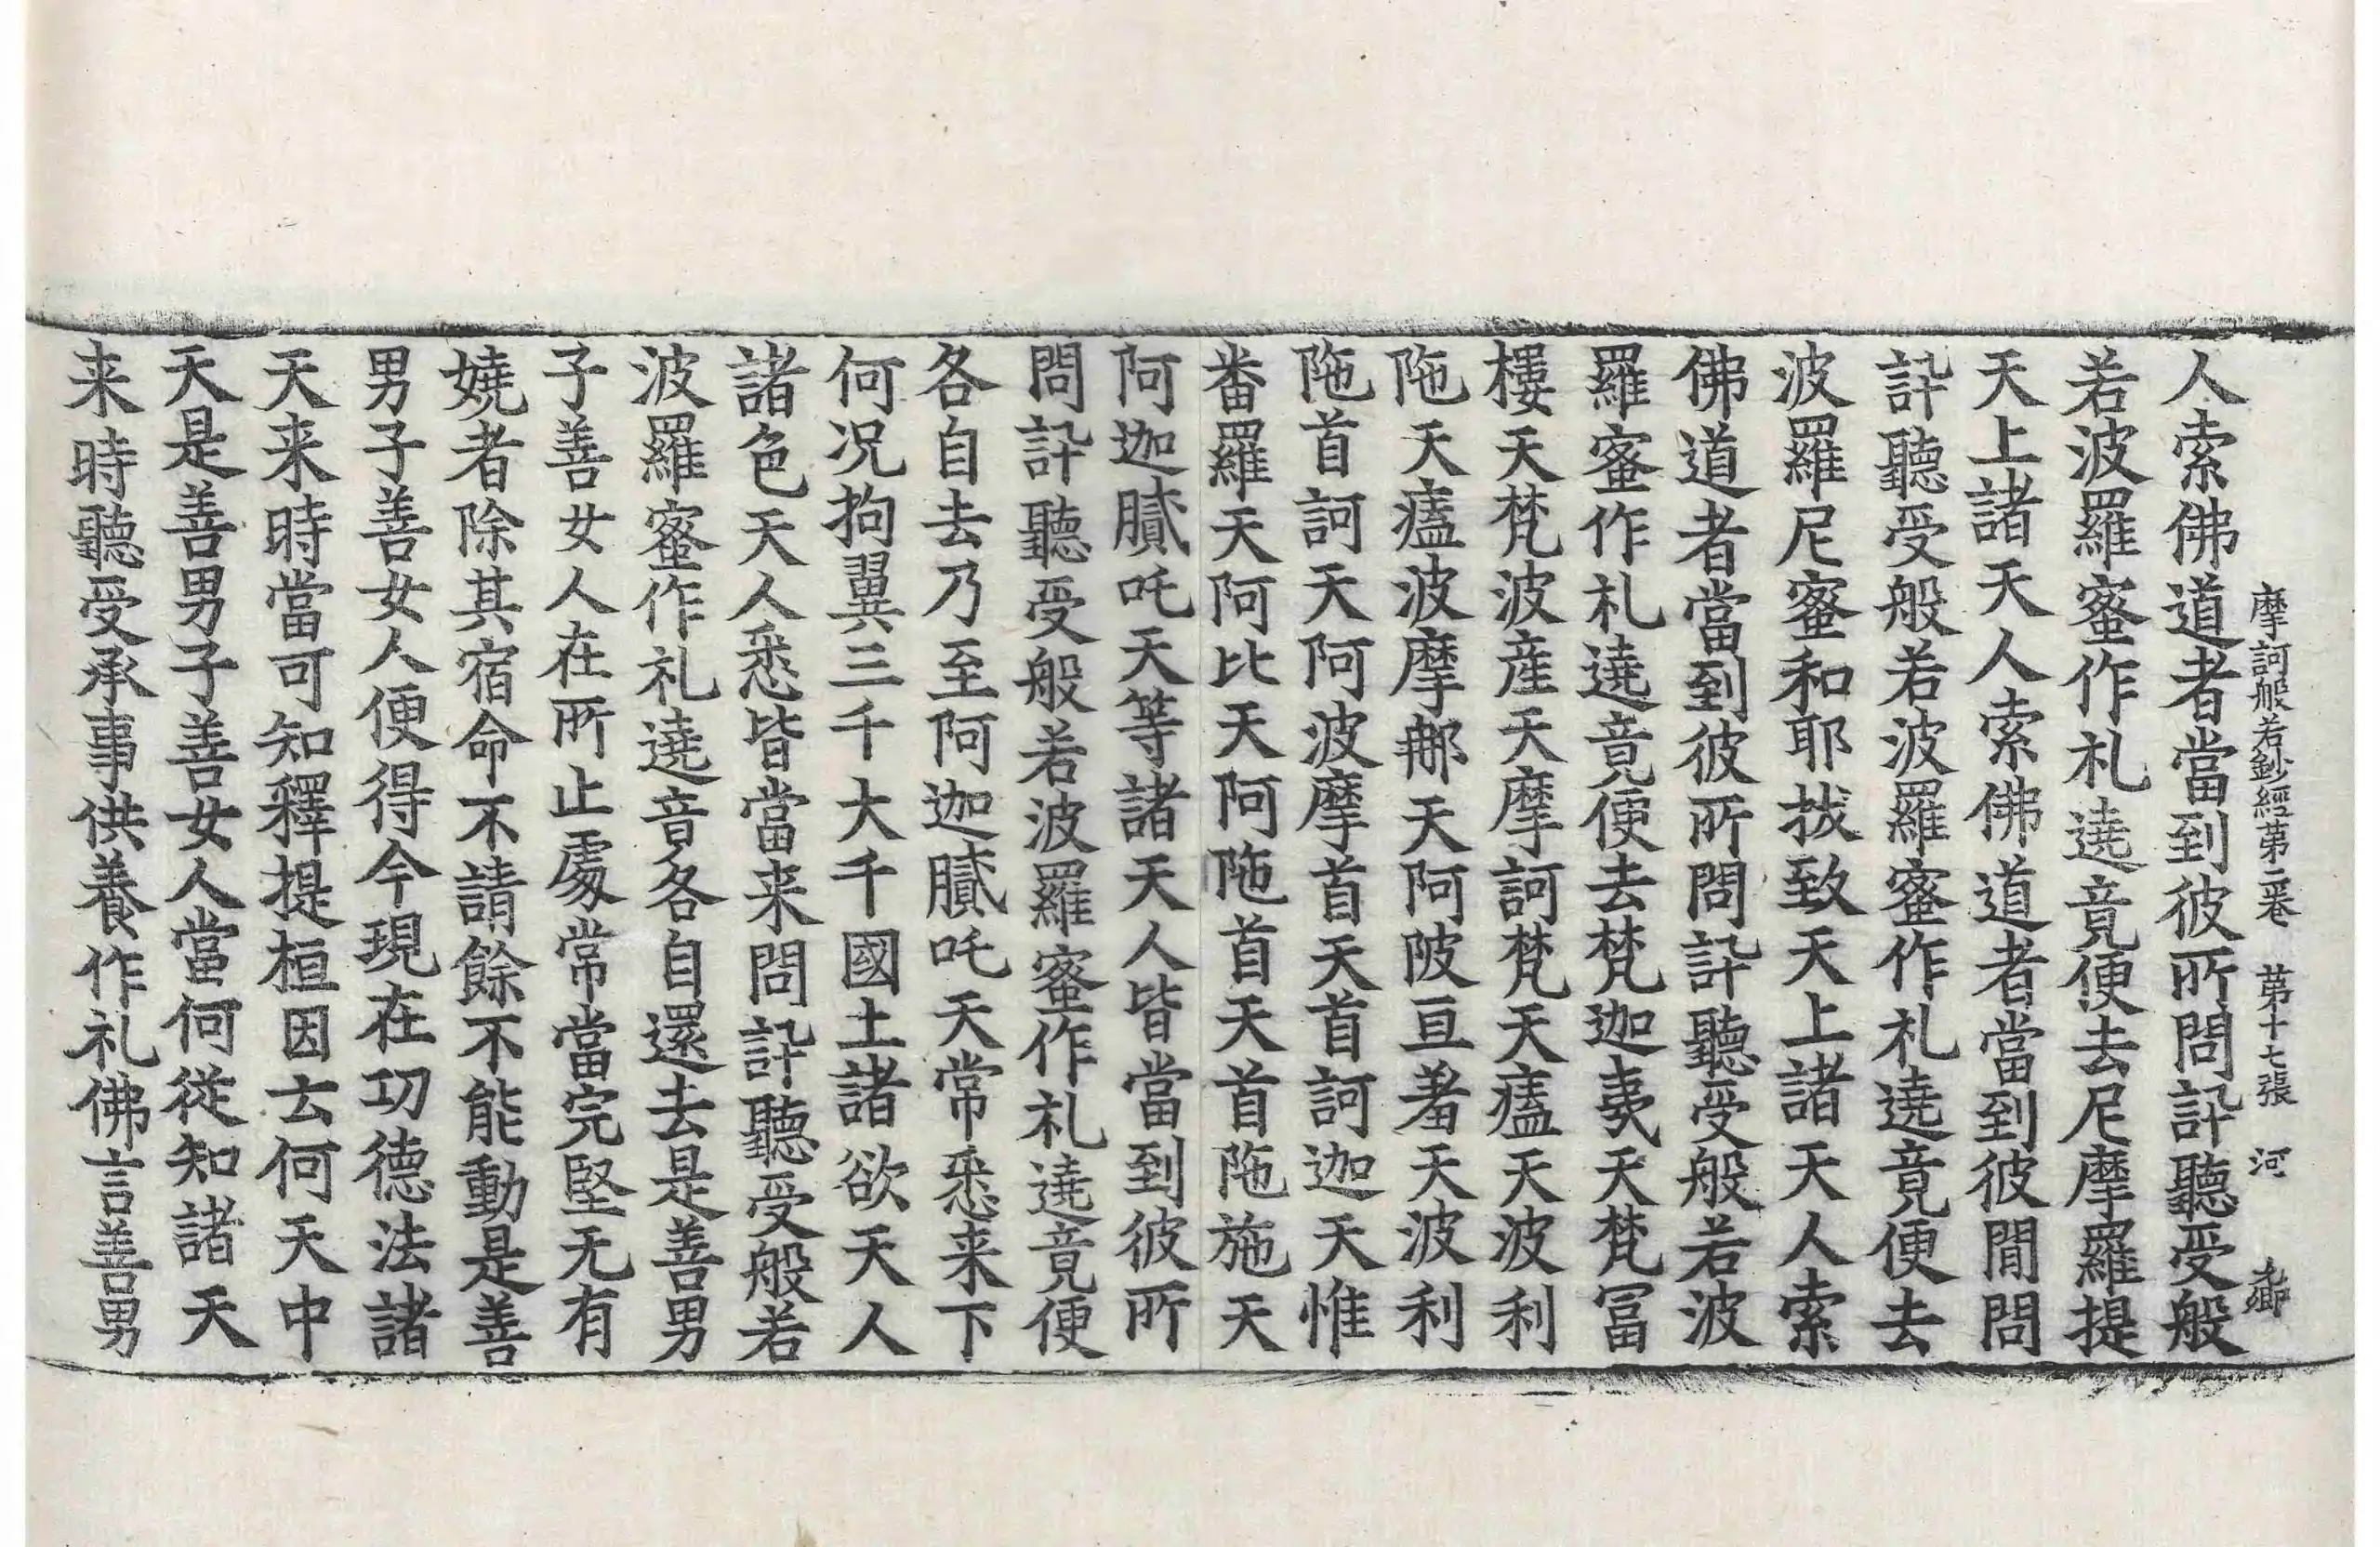 摩訶般若鈔經第二卷　第十七張　河
人索佛道者當到彼所問訊聽受般
若波羅蜜作礼遶竟便去尼摩羅提
天上諸天人索佛道者當到彼閒問
訊聽受般若波羅蜜作礼遶竟便去
波羅尼蜜和耶拔致天上諸天人索
佛道者當到彼所問訊聽受般若波
羅蜜作礼遶竟便去梵迦夷天梵冨
樓天梵波産天摩訶梵天㿄天波利
陁天㿄波摩那天阿陂亘羞天波利
陁首訶天阿波摩首天首訶迦天惟
番羅天阿比天阿陁首天首陁施天
阿迦膩吒天等諸天人皆當到彼所
問訊聽受般若波羅蜜作礼遶竟便
各自去乃至阿迦膩吒天常悉来下
何况拘翼三千大千國土諸欲天人
諸色天人悉皆當来問訊聽受般若
波羅蜜作礼遶音各自還去是善男
子善女人在所止處常當完堅无有
嬈者除其宿命不請餘不能動是善
男子善女人便得今現在㓛德法諸
天来時當可知釋提桓因云何天中
天是善男子善女人當何從知諸天
来時聽受承事供養作礼佛言善男